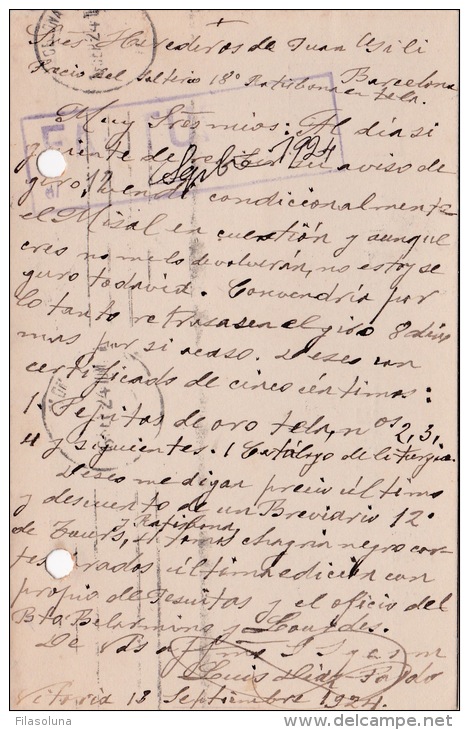 +
Sres Herederos de Juan Gili
Barcelona
Precio del Salterio 18º Ratisbona en tela.
Muy Sres míos: Al día si
guiente de recibir su aviso de
Sepbre 1924
giro, vendí condicionalmente
el Misal en cuestión y aunque
creo no me lo devolverán, no estoy se
guro todavía. Convendría por
lo tanto retrasasen el giro 8 días
mas por si acaso. Deseo
certificado de cinco céntimos:
1 Pepitas de oro tela, nos 2, 3,
4 y siguientes. 1 Catálogo de liturgia.
Deseo me digan precio último
y descuento de un Breviario 12º
de Tours, y Ratisbona, 4 tomos chagrin negro cor
tes dorados última edición con
propio de Jesuitas y el oficio del
Bto Belarmino y Lourdes.
De Vds
Luis Díaz Pardo
Vitoria 13 Septiembre 1924.
Filasoluna
www.delcampe.net